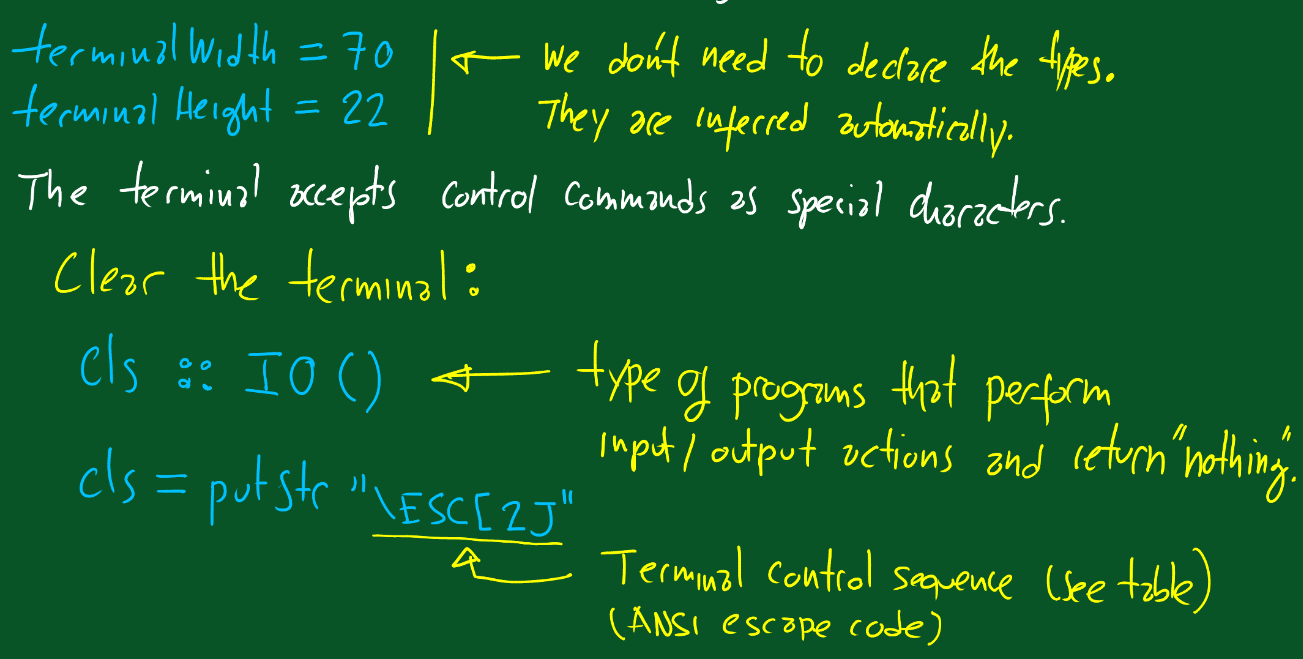 terminalWidth = 70 ← We don't need to declare the types.
terminalHeight = 22 They are inferred automatically.
The terminal accepts control commands as special characters.
Clear the terminal:
cls :: IO () ← type of programs that perform
input/output actions and return "nothing".
cls = putStr "\ESC[2J"
Terminal control sequence (see table)
(ANSI escape code)